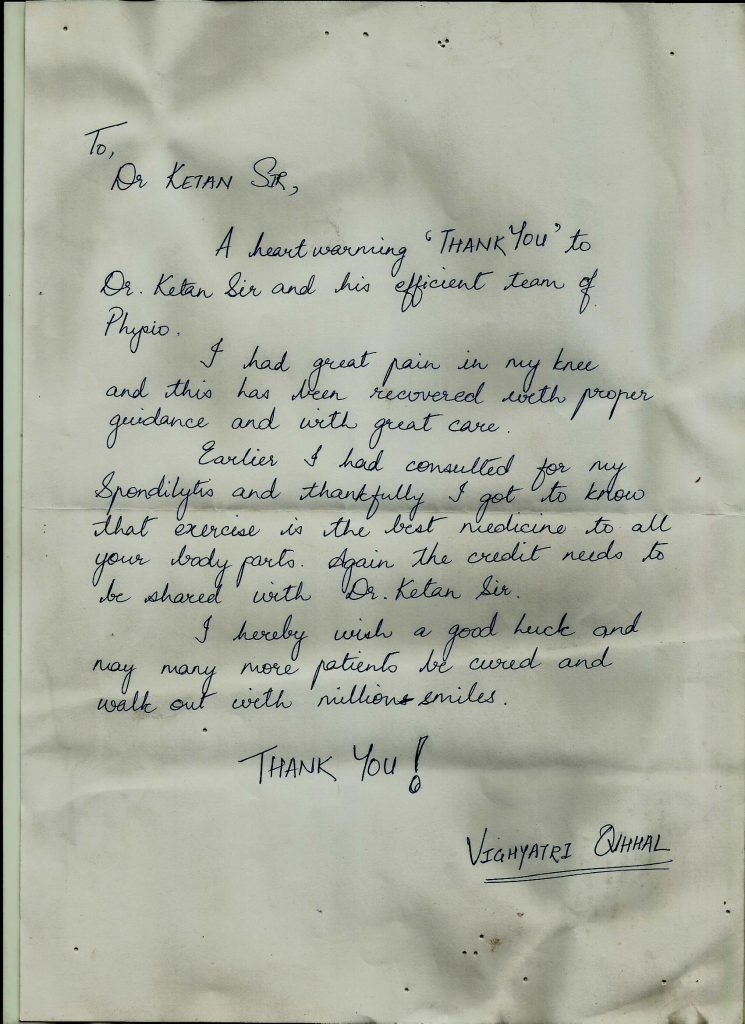 To,
Dr KETAN SIR,
A heart warming 'THANK YOU' to
Dr. Ketan Sir and his efficient team of
Physio.
I had great pain in my knee
and this has been recovered with proper
guidance and with great care.
Earlier I had consulted for my
Spondilytis and thankfully I got to know
that exercise is the best medicine to all
your body parts. Again the credit needs to
be shared with Dr. Ketan Sir.
I hereby wish a good luck and
may many more patients be cured and
walk out with millions smiles.
THANK YOU!
VIGHYATRI OVHHAL